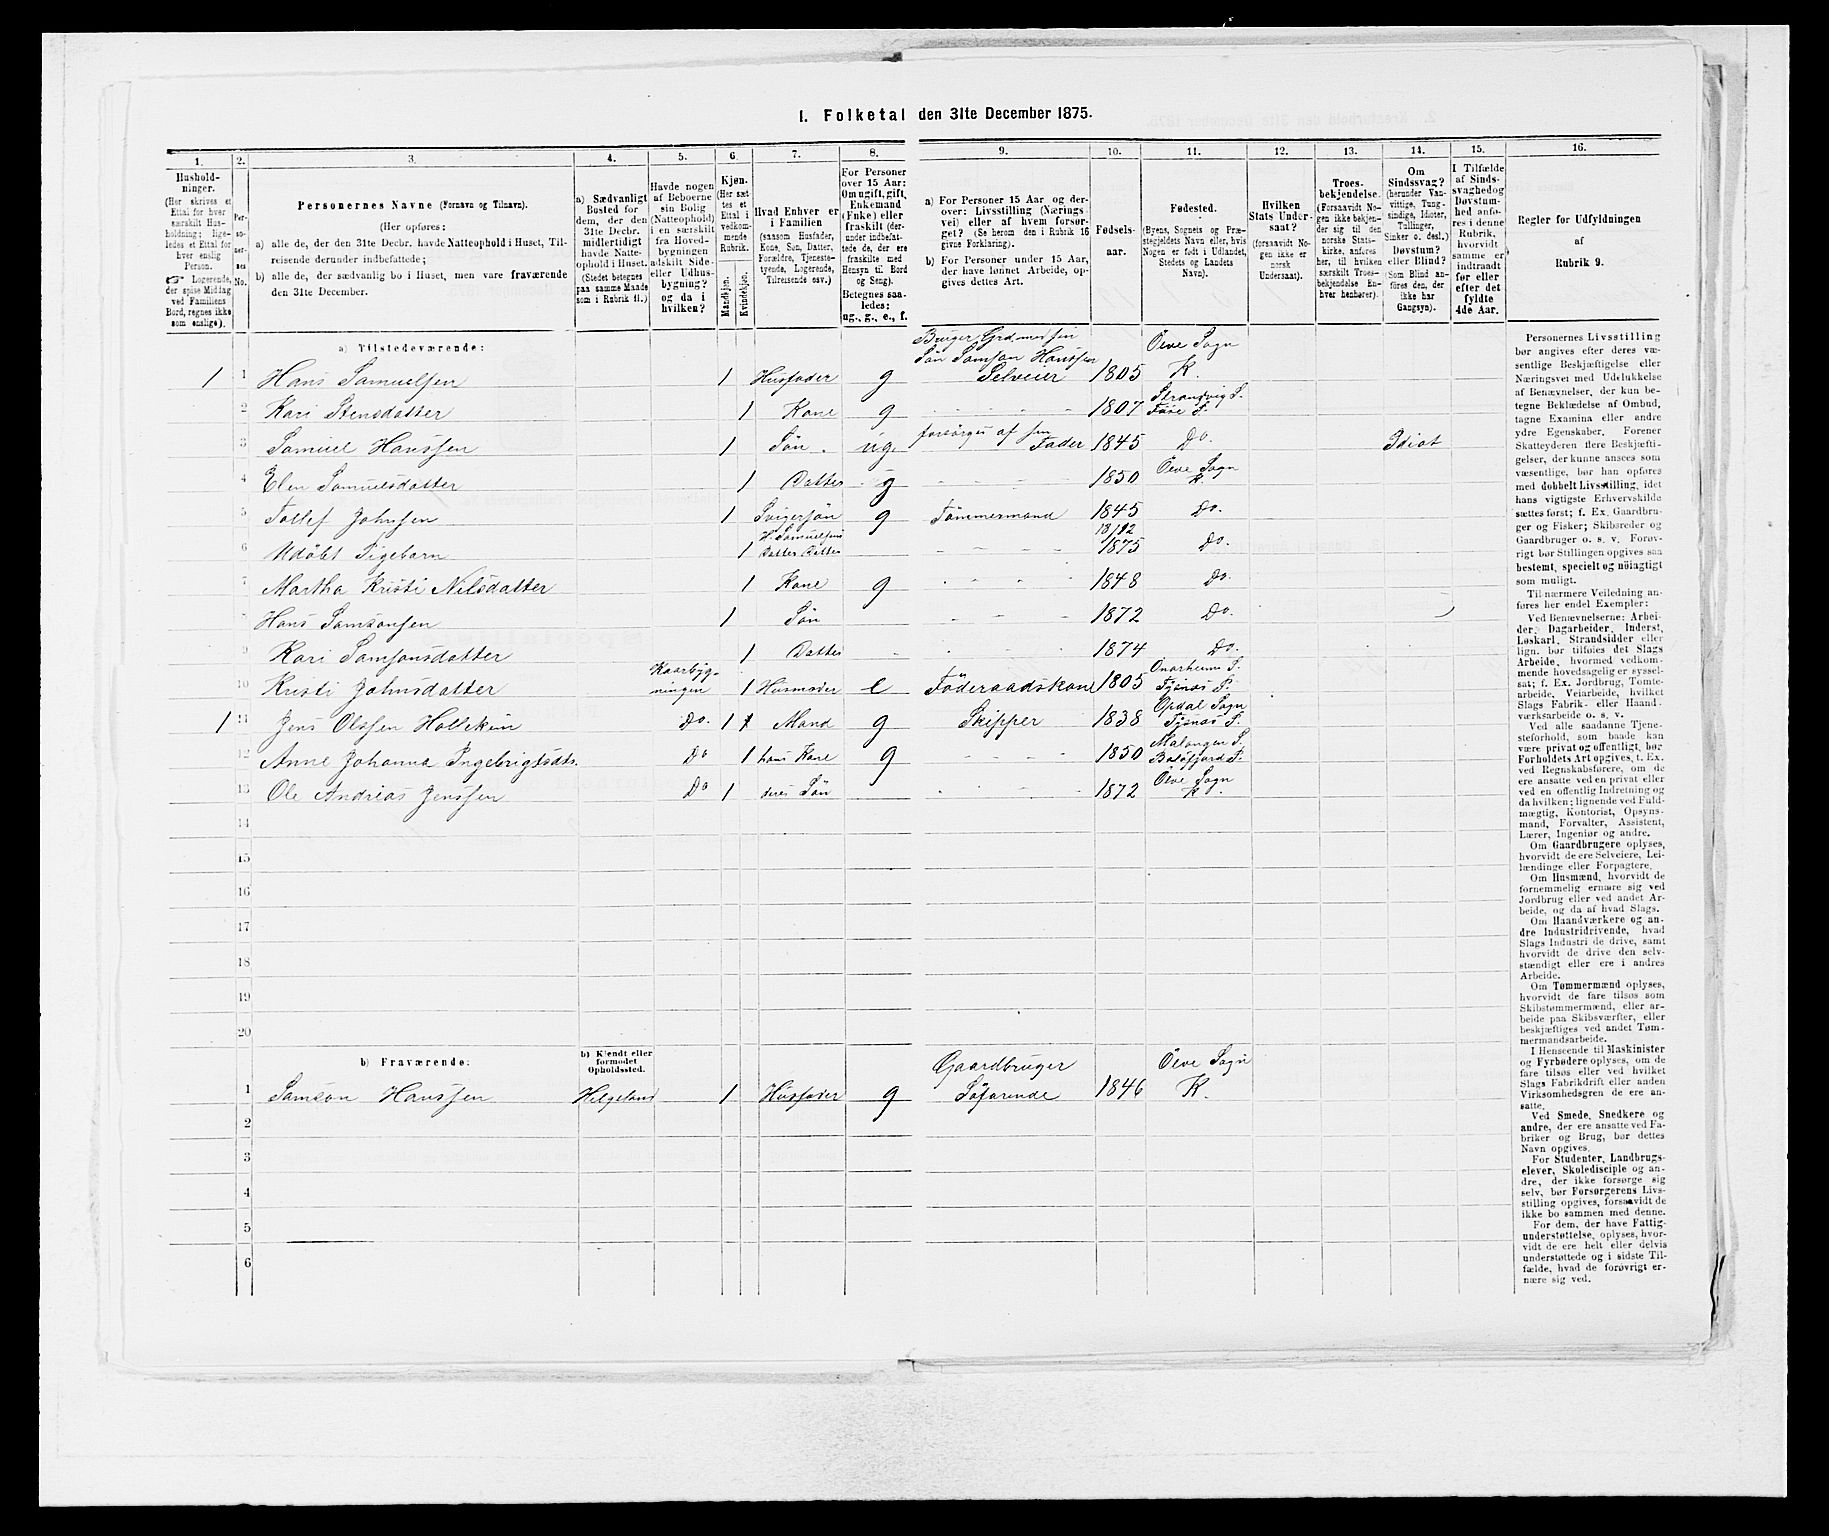 1. Folketal den 31te December 1875.
1. 2. 3. 4. 5. 6. 7. 8. 9. 10. 11. 12. 13. 14. 15. 16.
Hushold-
ninger.
(Her skrives et
Ettal for hver
særskilt Hus-
holdning; lige-
ledes et Ettal for
hver enslig
Person.
☞ Logerende,
der spise Middag
ved Familiens
Bord, regnes ikke
som enslige).
Per-
so-
ner-
nes
No.
Personernes Navne (Fornavn og Tilnavn).
(Her opføres:
a) alle de, der den 31te Decbr. havde Natteophold i Huset, Til-
reisende derunder indbefattede;
b) alle de, der sædvanlig bo i Huset, men vare fraværende
den 31te December.
a) Sædvanligt
Bosted for
dem, der den
31te Decbr.
midlertidigt
havde Natte-
ophold i Huset.
(Stedet betegnes
paa samme Maade
som i Rubrik 11.)
Havde nogen
af Beboerne
sin Bolig
(Natteophold)
i en særskilt
fra Hoved-
bygningen
adskilt Side-
eller Udhus-
bygning?
og da i
hvilken?
Kjøn.
(Her sæt-
tes et
Ettal i
vedkom-
mende
Rubrik.
Mandkjøn.
Kvindekjøn.
Hvad Enhver er
i Familien
(saasom Husfader,
Kone, Søn, Datter,
Forældre, Tjeneste-
tyende, Logerende,
Tilreisende osv.)
For Personer
over 15 Aar:
Om ugift, gift,
Enkemand
(Enke) eller
fraskilt (der-
under indbefat-
tede de, der ere
fraskilte med
Hensyn til Bord
og Seng).
Betegnes saa-
ledes:
ug., g., e., f.
a) For Personer 15 Aar og der-
over: Livsstilling (Nærings-
vei) eller af hvem forsør-
get? (Se herom den i Rubrik 16
givne Forklaring).
b) For Personer under 15 Aar,
der have lønnet Arbeide, op-
gives dettes Art.
Fødsels-
aar.
Fødested.
(Byens, Sognets og Præ-
stegjeldets Navn eller, hvis
Nogen er født i Udlandet,
Stedets og Landets
Navn).
Hvilken
Stats Under-
saat?
(forsaavidt No-
gen ikke er
norsk
Undersaat).
Troes-
bekjendelse.
(Forsaavidt No-
gen ikke bekjen-
der sig til den
norske Stats-
kirke, anføres
her, til hvilken
særskilt Troes-
bekjendelse En-
hver henhører).
Om
Sindssvag?
(herunder Van-
vittige, Tung-
sindige, Idioter,
Tullinger,
Sinker o. desl.)
Døvstum?
eller Blind?
(Som Blind an-
føres den, der
ikke har
Gangsyn).
I Tilfælde
af Sinds-
svaghed og
Døvstum-
hed anfø-
res i denne
Rubrik,
hvorvidt
samme er
indtraadt
før eller
efter det
fyldte
4de Aar.
Regler for Udfyldningen
af
Rubrik 9.
a) Tilstedeværende:
1 1 Hans Samuelsen 1 Husfader g Bruger Grd. med sin Søn Samson Hanssen Selveier 1805 Ölve Sogn K.
2 Kari Stensdatter 1 Kone g 1807 Strandvig S. Fuse P.
3 Samuel Hanssen 1 Søn. ug. forsörges af sin Fader 1845 Do. Idiot
4 Elen Samuelsdatter 1 Datter g 1850 Ölve Sogn K.
5 Tollef Johnsen 1 Svigersön g Tömmermand 1845 Do.
6 Udöbt Pigebarn 1 H. Samuelsens Datter Datter 18/12 1875 Do.
7 Martha Kristi Nilsdatter 1 Kone g 1848 Do.
8 Hans Samsonsen 1 Sön 1872 Do.
9 Kari Samsonsdatter 1 Datter 1874 Do.
10 Kristi Johnsdatter Kaarbyg-ningen 1 Husmoder e Föderaadskone 1805 Onarheims S. Tysnæs P.
1 11 Jens Olssen Hollekim Do. 1 Mand g Skipper 1838 Opdal Sogn Tysnæs P.
12 Anne Johanna Ingebrigtsdtr. Do 1 hans Kone g 1850 Malangen S. Balsfjord P.
13 Ole Andreas Jenssen Do 1 deres Sön 1872 Ölve Sogn K.
14
15
16
17
18
19
20
b) Fraværende:
b) Kjendt eller
formodet
Opholdssted.
1 Samson Hanssen Helgeland 1 Husfader g Gaardbruger Söfarende 1846 Ölve Sogn K.
2
3
4
5
6
Personernes Livsstilling
bør angives efter deres væ-
sentlige Beskjæftigelse eller
Næringsvei med Udelukkelse
af Benævnelser, der kun be-
tegne Beklædelse af Ombud,
tagne Examina eller andre
ydre Egenskaber. Forener
Skatteyderen flere Beskjæfti-
gelser, der kunne ansees som
væsentlige, bør han opføres
med dobbelt Livsstilling, idet
hans vigtigste Erhvervskilde
sættes først; f. Ex. Gaardbru-
ger og Fisker; Skibsreder og
Gaardbruger o. s. v. Forøv-
rigt bør Stillingen opgives saa
bestemt, specielt og nøiagtigt
som muligt.
Til nærmere Veiledning an-
føres her endel Exempler:
Ved Benævnelserne: Arbei-
der, Dagarbeider, Inderst,
Løskarl, Strandsidder eller
lign. bør tilføies det Slags
Arbeide, hvormed vedkom-
mende hovedsagelig er syssel-
sat; f. Ex. Jordbrug, Tomte-
arbeide, Veiarbeide, hvilket
Slags Fabrik- eller Haand-
værksarbeide o. s. v.
Ved alle saadanne Tjene-
steforhold, som baade kan
være privat og offentligt, bør
Forholdets Art opgives, t. Ex.
ved Regnskabsførere, om de
ere ansatte ved en privat eller
ved en offentlig Indretning og
da hvilken; lignende ved Fuld-
mægtig, Kontorist, Opsyns-
mand, Forvalter, Assistent,
Lærer, Ingeniør og andre.
Om Gaardbrugere oplyses,
hvorvidt de ere Selveiere, Lei-
lændinge eller Forpagtere.
Om Husmænd, hvorvidt de
fornemmelig ernære sig ved
Jordbrug eller ved andet Ar-
beide, og da af hvad Slags.
Om Haandværkere og an-
dre Industridrivende, hvad
Slags Industri de drive, samt
hvorvidt de drive den selv-
stændigt eller ere i andres
Arbeide.
Om Tømmermænd oplyses,
hvorvidt de fare tilsøs som
Skibstømmermænd, eller ar-
beide paa Skibsværfter, eller
beskjæftiges ved andet Tøm-
mermandsarbeide.
I Henseende til Maskinister
og Fyrbødere oplyses, om de
fare tilsøs eller ved hvilket
Slags Fabrikdrift eller anden
Virksomhedsgren de ere an-
satte.
Ved Smede, Snedkere og
andre, der ere ansatte ved Fa-
briker og Brug, bør dettes
Navn opgives.
For Studenter, Landbrugs-
elever, Skoledisciple og an-
dre, der ikke forsørge sig
selv, bør Forsørgerens Livs-
stilling opgives, forsaavidt de
ikke bo sammen med denne.
For dem, der have Fattig-
understøttelse, oplyses, hvor-
vidt de ere helt eller delvis
understøttede og i sidste Til-
fælde, hvad de forøvrigt er-
nære sig ved.